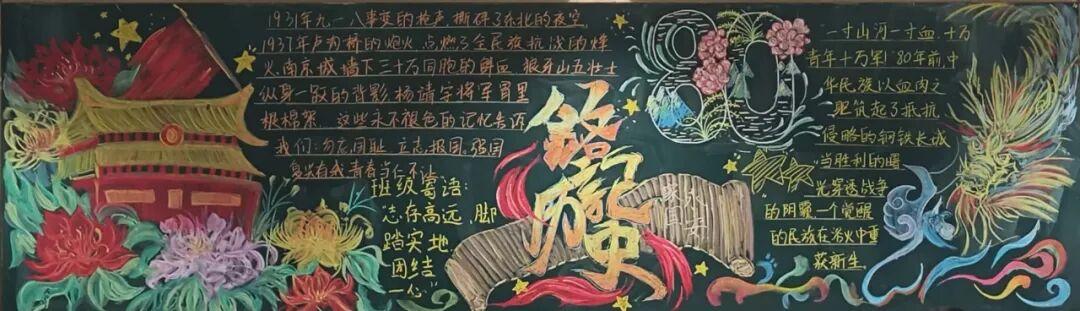 1931年九一八事变的枪声,撕碎了东北的夜空
1937年卢沟桥的炮火,点燃了全民族抗战的烽
火,南京城墙下三十万同胞的鲜血,狼牙山五壮士
纵身一跃的背影,杨靖宇将军胃里
棉絮,这些永不褪色的记忆告诉
我们:勿忘国耻,立志报国,强国
复兴有我,青春当仁不让
班级寄语:
"志存高远,脚
踏实地,
团结
一心"
铭记
历史
家国
永安
80
一寸山河一寸血,十万
青年十万军!80年前,中
华民族以血肉之
躯筑起了抵抗
侵略的钢铁长城
当胜利的曙
光穿透战争
的阴霾,一个觉醒
的民族在浴火中重
获新生.